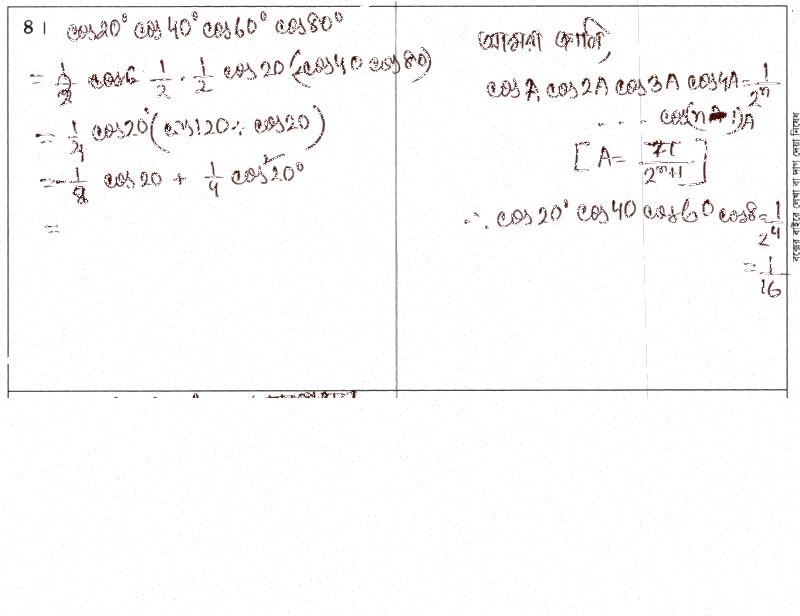 8। cos20° cos40° cos60° cos80°
= 1/2 · 1/2 cos20 (2cos40 cos80)
= 1/4 cos20° (cos120 + cos20)
= -1/8 cos20 + 1/4 cos²20°
=
আমরা জানি,
cosA, cos2A cos3A cos4A = 1/2ⁿ
. . . cos(n-1)A
[A = π/2ⁿ+1]
∴ cos20° cos40 cos60 cos8 = 1/2⁴
= 1/16
বক্সের বাইরে লেখা বা দাগ দেয়া নিষেধ